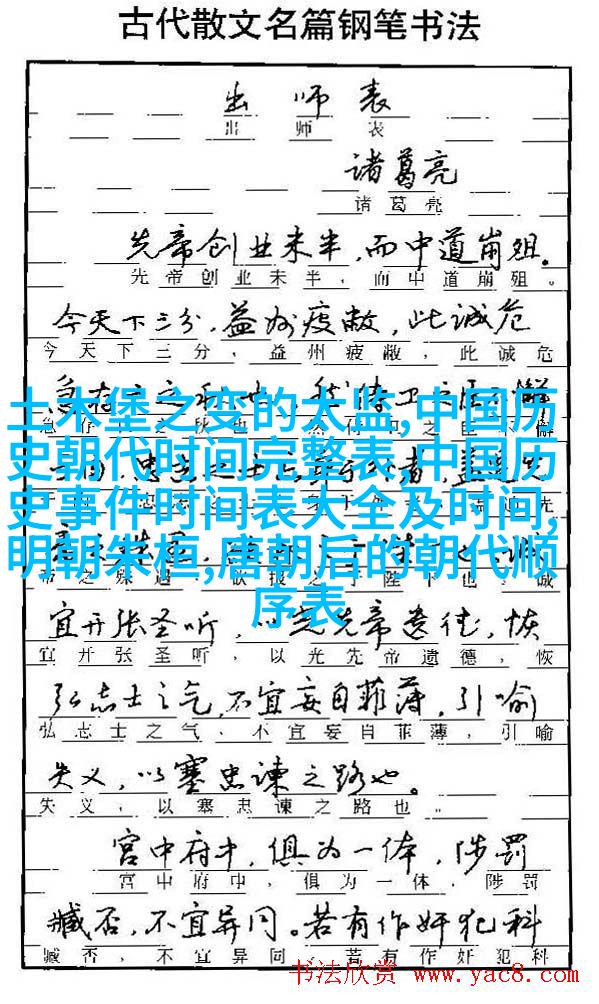 古代散文名篇钢笔书法
出师表
出师表
诸葛亮
诸葛亮
先帝创业未半,而中道崩殂。
先帝创业未半,而中道崩殂。
今天下三分,益州疲敝,此诚危
今天下三分,益州疲敝,此诚危
土木堡之变的太监,中国历
史朝代时间完整表,中国历
史事件时间表大全及时间,
明朝朱桓,唐朝后的朝代顺
序表
宜开张圣听,以光先帝遗德,恢
宜开张圣听,以光先帝遗德,恢
弘志士之气,不宜妄自菲薄,引喻
弘志士之气,不宜妄自菲薄,引喻
失义,以塞忠谏之路也。
失义,以塞忠谏之路也。
宫中府中,俱为一体,陟罚
宫中府中,俱为一体,陟罚
臧否,不宜异同。若有作奸犯科
臧否,不宜异同。若有作奸犯科
书法欣赏 www.yac8.com